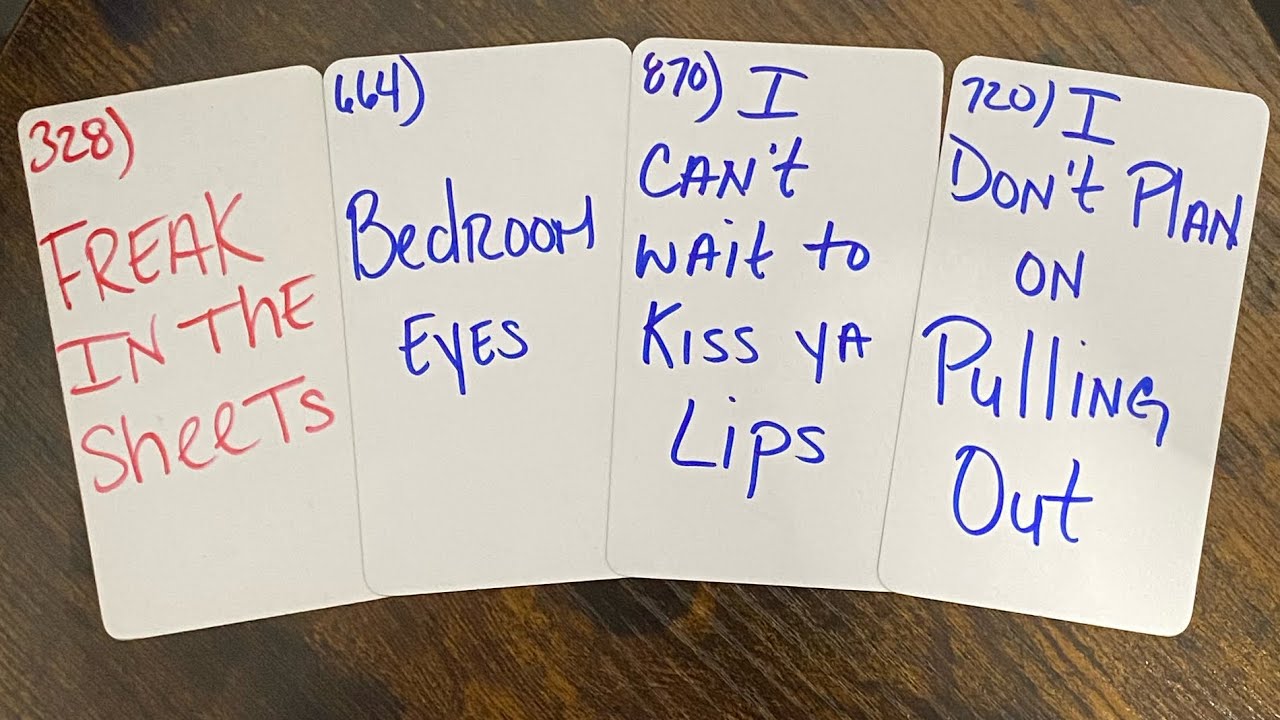 328)
FREAK
IN THE
SheeTs
664)
BedROOM
EyES
870) I
CAN't
WAit to
Kiss YA
Lips
720) I
DON't PlAN
ON
PulliNG
Out